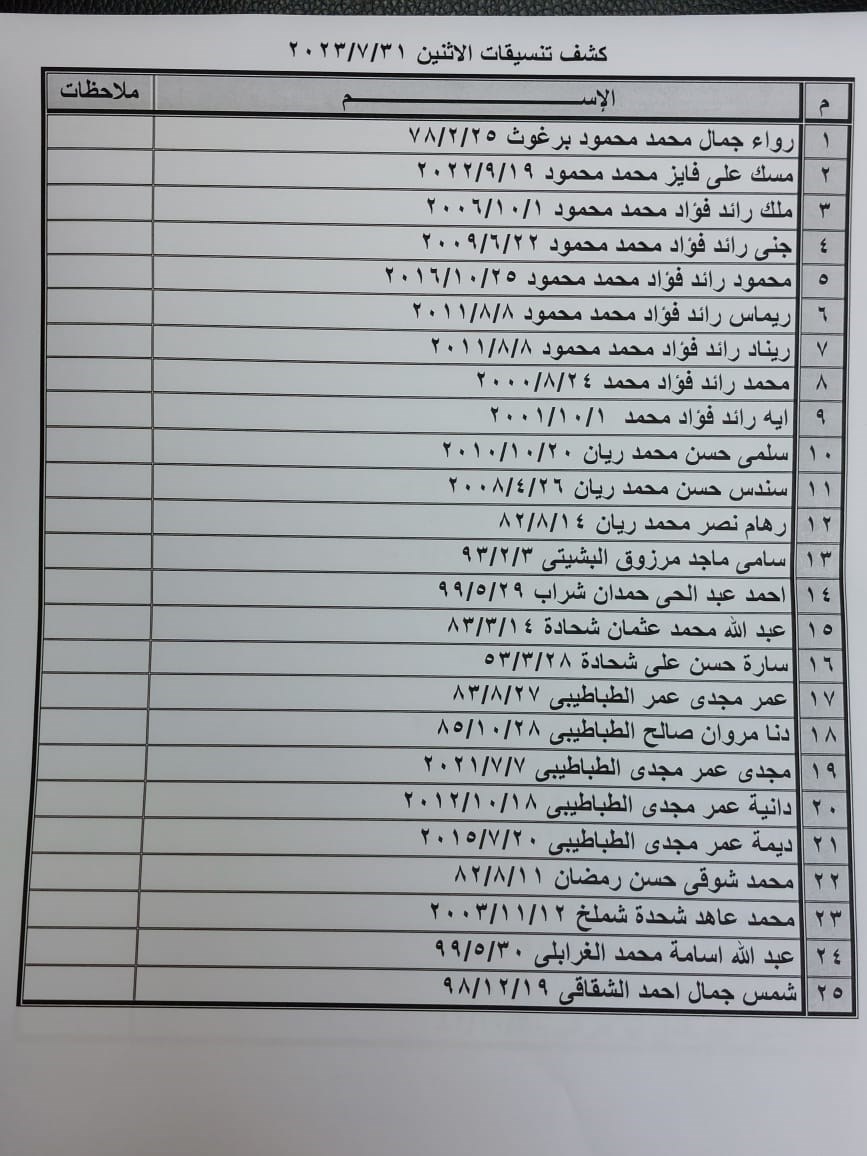 كشف تنسيقات الاثنين ٢٠٢٣/٧/٣١
م الإســـــم ملاحظات
١ رواء جمال محمد محمود برغوث ٧٨/٢/٢٥
٢ مسك على فايز محمد محمود ٢٠٢٢/٩/١٩
٣ ملك رائد فؤاد محمد محمود ٢٠٠٦/١٠/١
٤ جنى رائد فؤاد محمد محمود ٢٠٠٩/٦/٢٢
٥ محمود رائد فؤاد محمد محمود ٢٠١٦/١٠/٢٥
٦ ريماس رائد فؤاد محمد محمود ٢٠١١/٨/٨
٧ ريناد رائد فؤاد محمد محمود ٢٠١١/٨/٨
٨ محمد رائد فؤاد محمد ٢٠٠٠/٨/٢٤
٩ ايه رائد فؤاد محمد ٢٠٠١/١٠/١
١٠ سلمى حسن محمد ريان ٢٠١٠/١٠/٢٠
١١ سندس حسن محمد ريان ٢٠٠٨/٤/٢٦
١٢ رهام نصر محمد ريان ٨٢/٨/١٤
١٣ سامى ماجد مرزوق البشيتى ٩٣/٢/٣
١٤ احمد عبد الحى حمدان شراب ٩٩/٥/٢٩
١٥ عبد الله محمد عثمان شحادة ٨٣/٣/١٤
١٦ سارة حسن على شحادة ٥٣/٣/٢٨
١٧ عمر مجدى عمر الطباطيبى ٨٣/٨/٢٧
١٨ دنا مروان صالح الطباطيبى ٨٥/١٠/٢٨
١٩ مجدى عمر مجدى الطباطيبى ٢٠٢١/٧/٧
٢٠ دانية عمر مجدى الطباطيبى ٢٠١٢/١٠/١٨
٢١ ديمة عمر مجدى الطباطيبى ٢٠١٥/٧/٢٠
٢٢ محمد شوقى حسن رمضان ٨٢/٨/١١
٢٣ محمد عاهد شحدة شملخ ٢٠٠٣/١١/١٢
٢٤ عبد الله اسامة محمد الغرابلى ٩٩/٥/٣٠
٢٥ شمس جمال احمد الشقاقى ٩٨/١٢/١٩